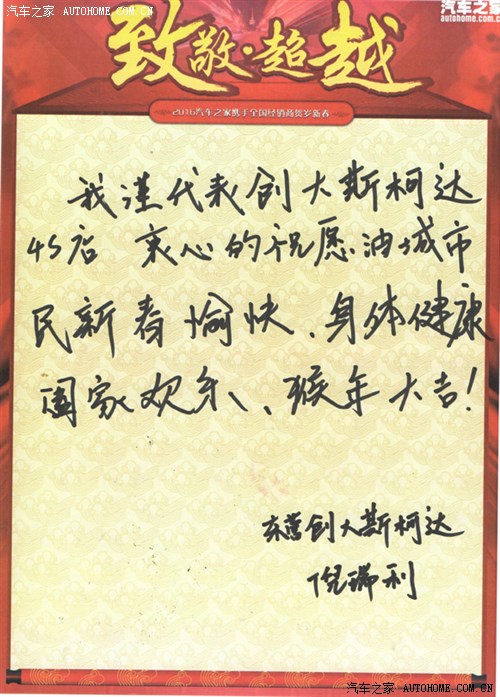 汽车之家 AUTOHOME.COM.CN
汽车之家
autohome.com.cn
致敬·超越
2016汽车之家携手全国经销商贺岁新春
我谨代表创大斯柯达
4S店 衷心的祝愿油城市
民新春愉快、身体健康
阖家欢乐、猴年大吉!
东营创大斯柯达
倪瑞利
汽车之家 AUTOHOME.COM.CN